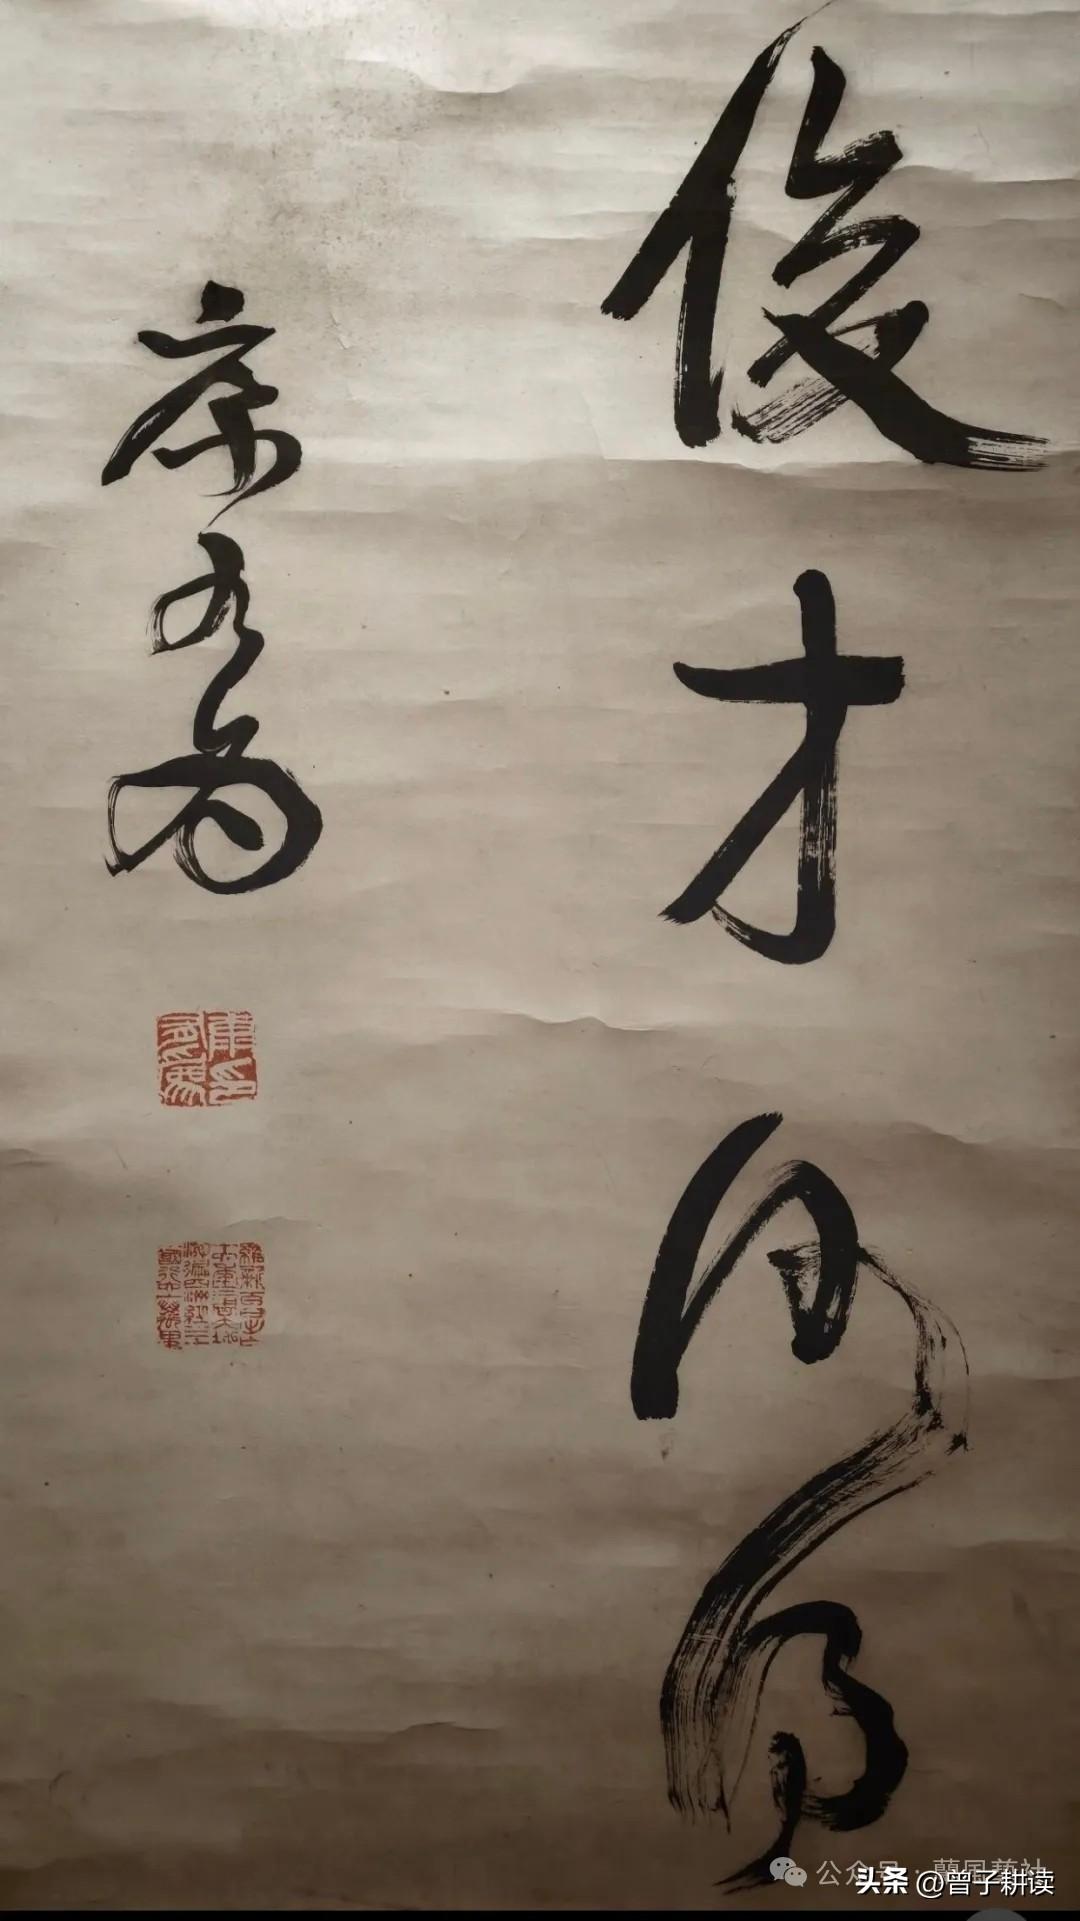 俊才
康有為
康有為印
維新百日出亡
十六年三周大地
游遍四洲經三十一
國行六十萬里
公众号
头条 @曾子耕读